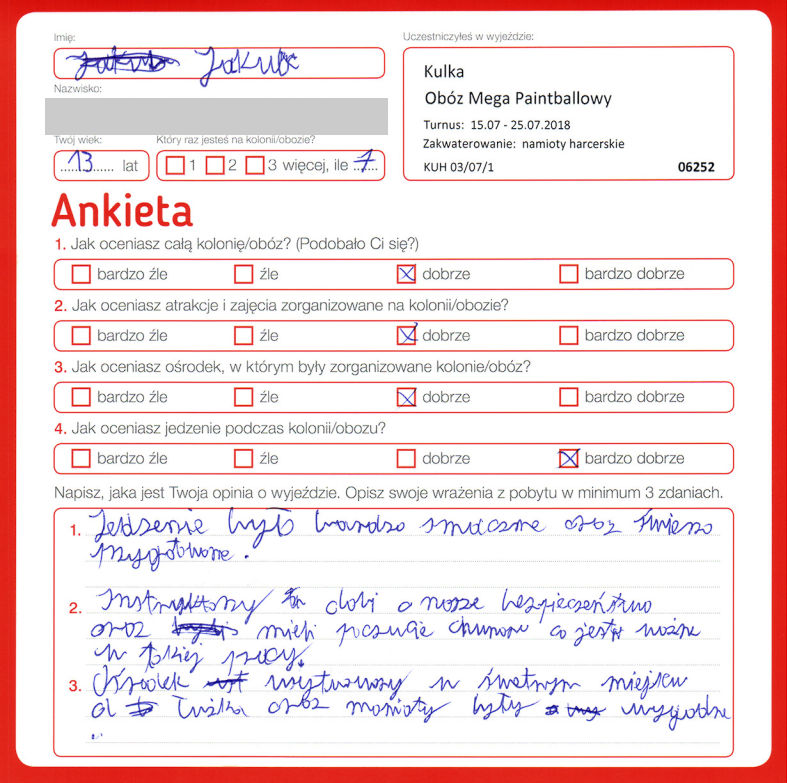 Imię:
Uczestniczyłeś w wyjeździe:
Jakub Jakub
Kulka
Nazwisko:
Obóz Mega Paintballowy
Turnus: 15.07 - 25.07.2018
Twój wiek: Który raz jesteś na kolonii/obozie?
Zakwaterowanie: namioty harcerskie
13 lat 1 2 3 więcej, ile 7
KUH 03/07/1 06252
Ankieta
1. Jak oceniasz całą kolonię/obóz? (Podobało Ci się?)
bardzo źle źle dobrze bardzo dobrze
2. Jak oceniasz atrakcje i zajęcia zorganizowane na kolonii/obozie?
bardzo źle źle dobrze bardzo dobrze
3. Jak oceniasz ośrodek, w którym były zorganizowane kolonie/obóz?
bardzo źle źle dobrze bardzo dobrze
4. Jak oceniasz jedzenie podczas kolonii/obozu?
bardzo źle źle dobrze bardzo dobrze
Napisz, jaka jest Twoja opinia o wyjeździe. Opisz swoje wrażenia z pobytu w minimum 3 zdaniach.
1. Jedzenie było bardzo smaczne oraz świerzo
przygotowane.
2. Instruktorzy dobi o nasze bezpieczeństwo
oraz mieli poczucie chumoru co jest ważne
w takiej pracy.
3. Ośrodek usytuowany w świetnym miejscu
a łużka oraz namioty były wygodne